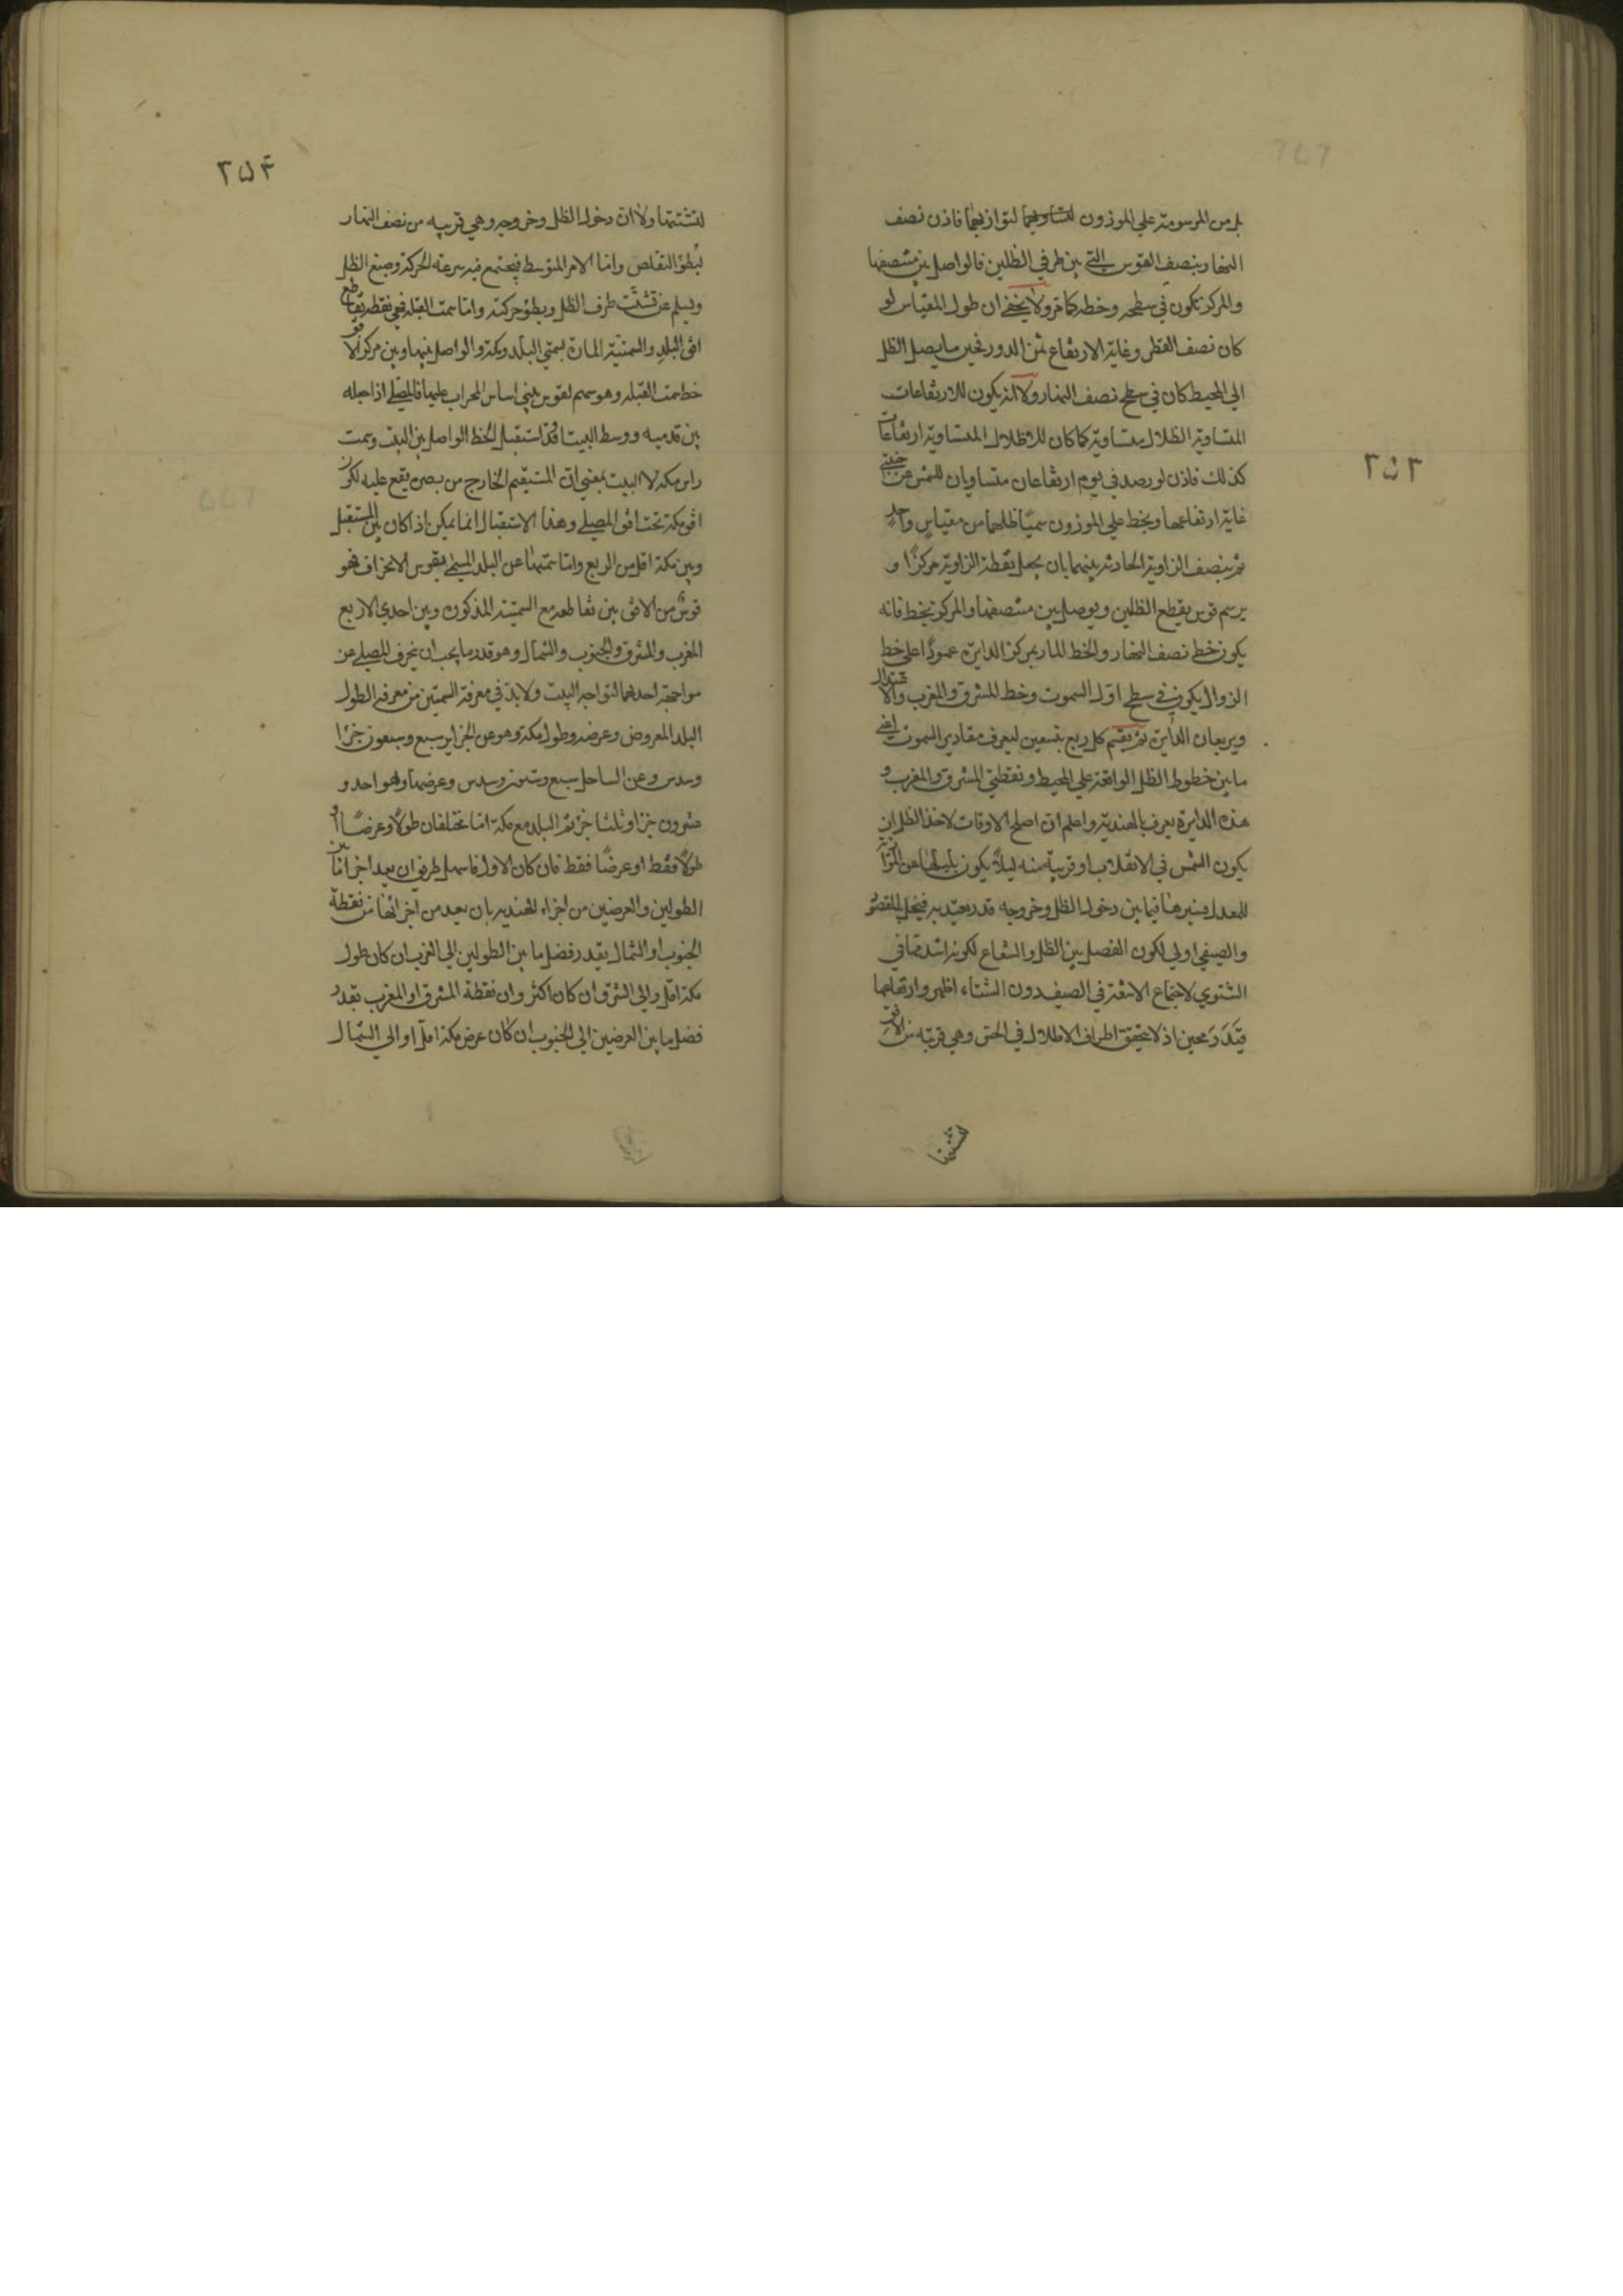 ٢٥٣
بل من المرسومة علي الموزون لتساويهما لتوازيهما فاذن نصف
النهار بنصف القوس التي بين طرفي الظلين فالواصل بين منتصفها
والمركز يكون في سطحه وخطه كما مر ولا يخفي ان طول المقياس لو
كان نصف القطر وغاية الارتفاع ثمن الدور فحين ما يصل الظل
الي المحيط كان في سطح نصف النهار ولانه يكون للارتفاعات
المتساوية اظلال متساوية كما كان للاظلال المتساوية ارتفاعات
كذلك فاذن لو رصد في يوم ارتفاعان متساويان للشمس عن جنبتي
غاية ارتفاعها ويخط علي الموزون سمتا ظلهما من مقياس واحد
ثم بنصف الزاوية الحادثة بينهما بان يجعل نقطة الزاوية مركزًا و
يرسم قوس يقطع الظلين ويوصل بين منتصفها والمركز بخط فانه
يكون خط نصف النهار والخط المار بمركز الدايرة عمودًا علي خط
الزوال يكون في سطح اول السموت وخط المشرق والمغرب والاعتدال
ويربعان الدايرة ثم يقسم كل ربع بتسعين ليعرف مقادير السموت اعني
ما بين خطوط الظل الواقعة علي المحيط ونقطتي المشرق والمغرب و
هذه الدايرة يعرف بالهندية واعلم ان اصلح الاوقات لاخذ الظل ان
يكون الشمس في الانقلاب او قريبة منه ليلا يكون
للمعدل بسيرها فيما بين دخول الظل وخروجه قدر يعتد به فيخل بالمقصود
والصيفي اولي لكون الفصل بين الظل والشعاع لكونه اشد مما في
الشتوي لاجتماع الاشعة في الصيف دون الشتاء اظهر وارتفاعها
قيد رمحين اذ لا يتحقق اطراف الاظلال في الحس وهي قريبة من الافق
لتشتتها
٢٥٤
لتشتتها ولا ان دخول الظل وخروجه وهي قريبه من نصف النهار
لبطؤ التقلص واما الامر المتوسط فيجتمع فيه سرعة الحركة وصنع الظل
ويسلم عن تشتت طرف الظل وبطؤ حركته واما سمت القبلة فهي نقطة تقاطع
افق البلد والسمتية المارة بسمتي البلد ومكة والواصل بينها وبين مركز الافق
خط سمت القبلة وهو سهم لقوس يبني اساس المحراب عليها فالمصلي اذا جعله
بين قدميه ووسط البيت فقد استقبل الخط الواصل بين البيت وسمت
راس مكة لا البيت بمعني ان المستقيم الخارج من بصره يقع عليه لكون
افق مكة تحت افق المصلي وهذا الاستقبال انما يمكن اذا كان بين المستقبل
وبين مكة اقل من الربع واما سمتها عن البلد المسمي بقوس الانحراف فهو
قوس من الافق بين تقاطعه مع السمتية المذكورة وبين احدي الاربع
المغرب والمشرق والجنوب والشمال وهو قدر ما يجب ان ينحرف المصلي عن
مواجهة احدها لتواجه البيت ولابد في معرفة السمتين من معرفة الطول
البلد المفروض وعرضه وطول مكة وهو عن الجزاير سبع وسبعون جزءا
وسدس وعن الساحل سبع وستون وسدس وعرضها وهو احد و
عشرون جزءا وثلثا جزء ثم البلد مع مكة اما مختلفان طولا وعرضًا او
طولًا فقط او عرضًا فقط فان كان الاول فاسهل طرق ان يعد اجزاء ما بين
الطولين والعرضين من اجزاء الهندية بان يعد من اجزائها من نقطة
الجنوب او الشمال بقدر فضل ما بين الطولين الي الغرب ان كان طول
مكة اقل والي الشرق ان كان اكثر وان نقطة المشرق او المغرب بقدر
فضل ما بين العرضين الي الجنوب ان كان عرض مكة اقل او الي الشمال